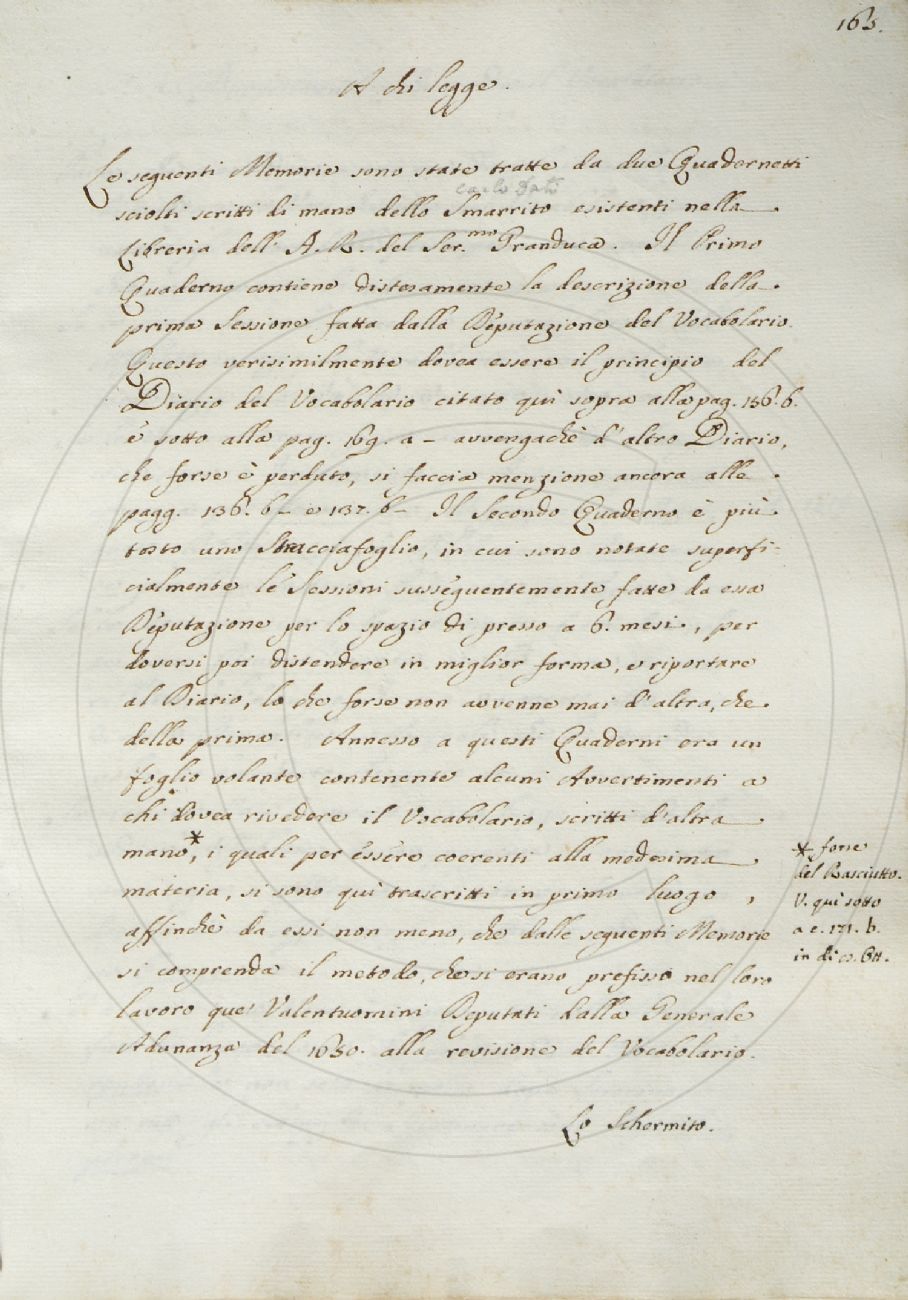 163.
A chi legge.
Le seguenti Memorie sono state tratte da due Quadernetti
Carlo Dati
sciolti scritti di mano dello Smarrito esistenti nella
Libreria dell' A. R. del Ser.mo Granduca. Il Primo
Quaderno contiene distesamente la descrizione della
prima Sessione fatta dalla Deputazione del Vocabolario.
Questo verisimilmente dovea essere il principio del
Diario del Vocabolario citato quì sopra alla pag. 136. b.
e sotto alla pag. 169. a – avvengachè d'altro Diario,
che forse è perduto, si faccia menzione ancora alle
pagg. 136. b – e 137. b – Il Secondo Quaderno è più
tosto uno Stracciafoglio, in cui sono notate superfi-
cialmente le Sessioni susseguentemente fatte da essa
Deputazione per lo spazio di presso a 6. mesi, per
doversi poi distendere in miglior forma, e riportare
al Diario, lo che forse non avvenne mai d'altra, che
della prima. Annesso a questi Quaderni era un
foglio volante contenente alcuni Avvertimenti a
chi dovea rivedere il Vocabolario, scritti d'altra
mano*, i quali per essere coerenti alla medesima
materia, si sono quì trascritti in primo luogo,
affinchè da essi non meno, che dalle seguenti Memorie
si comprenda il metodo, che si erano prefisso nel loro
lavoro que' Valentuomini Deputati dalla Generale
Adunanza del 1650. alla revisione del Vocabolario.
* forse
del Rasciutto.
V. quì sotto
a c. 171. b.
in di
Lo Schermito.